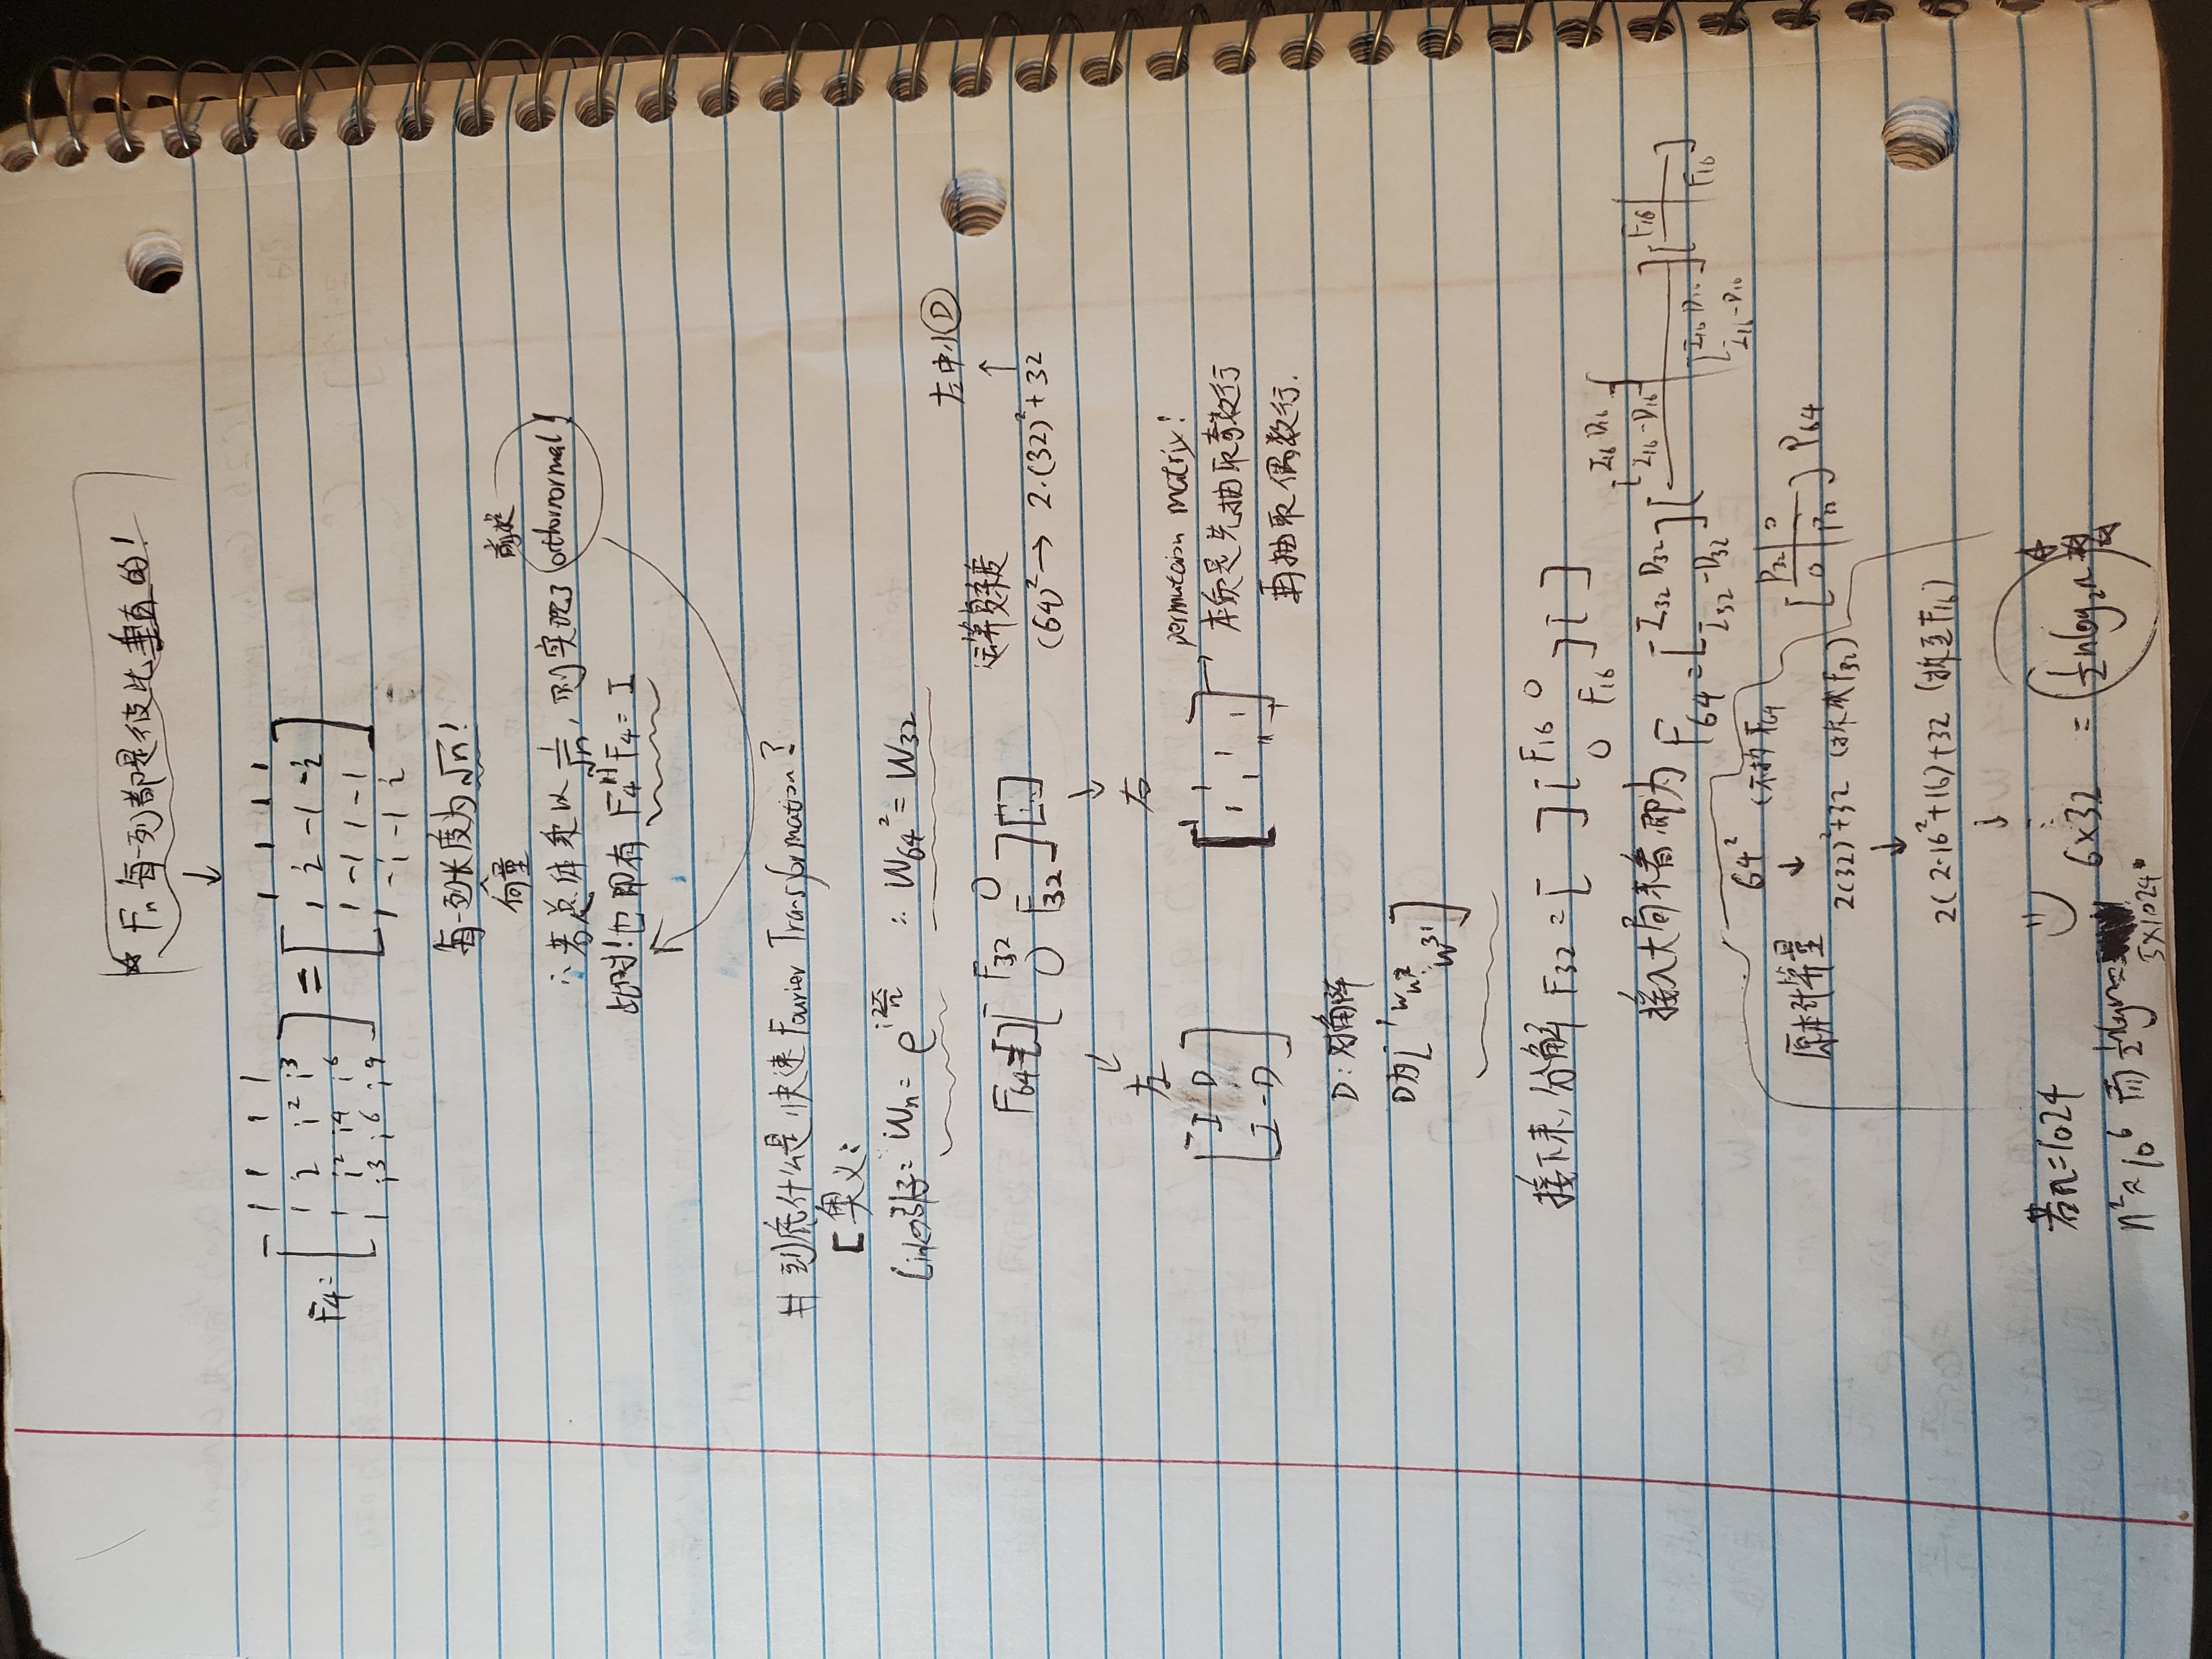 ☆ Fn 每一列都是彼此垂直的!
↓
F4 = [1 1 1 1; 1 i i² i³; 1 i² i⁴ i⁶; 1 i³ i⁶ i⁹] = [1 1 1 1; 1 i -1 -i; 1 -1 1 -1; 1 -i -1 i]
每一列长度为 √n!
向量
前提
∴若总体乘以 1/√n, 则实现了 orthornormal!
此时!也即有 F4ᴴ F4 = I
# 到底什么是快速 Fourier Transformation?
[奥义:
Link引子: Wn = e^(i2π/n) ∴ W64² = W32
左中小Ⓓ
运算复杂度 ↑
F64 = [ ] [F32 0; 0 F32] [ ] (64)² → 2·(32)² + 32
↙ ↓
左 右
[I D; I -D] [1 1 1 1 1 1] → permutaion matrix!
本质是先抽取奇数行
再抽取偶数行.
D: 对角阵
D为 [1 wn w³¹]
接下来, 分解 F32 = [ ] [F16 0; 0 F16] [ ]
接入大局来看,即为 F64 = [I32 D32; I32 -D32] [[I16 D16; I16 -D16] [I16 D16; I16 -D16]] [F16 F16]
[P32 0; 0 P32] P64
64² (不拆F64
原本计算量 ↓
2(32)²+32 (拆成F32)
↓
2(2·16²+16)+32 (拆至F16)
↓
⋮
若n=1024
6×32 = ½nlog₂n
n²≈10⁶ 而 ½nlogn=
5×1024